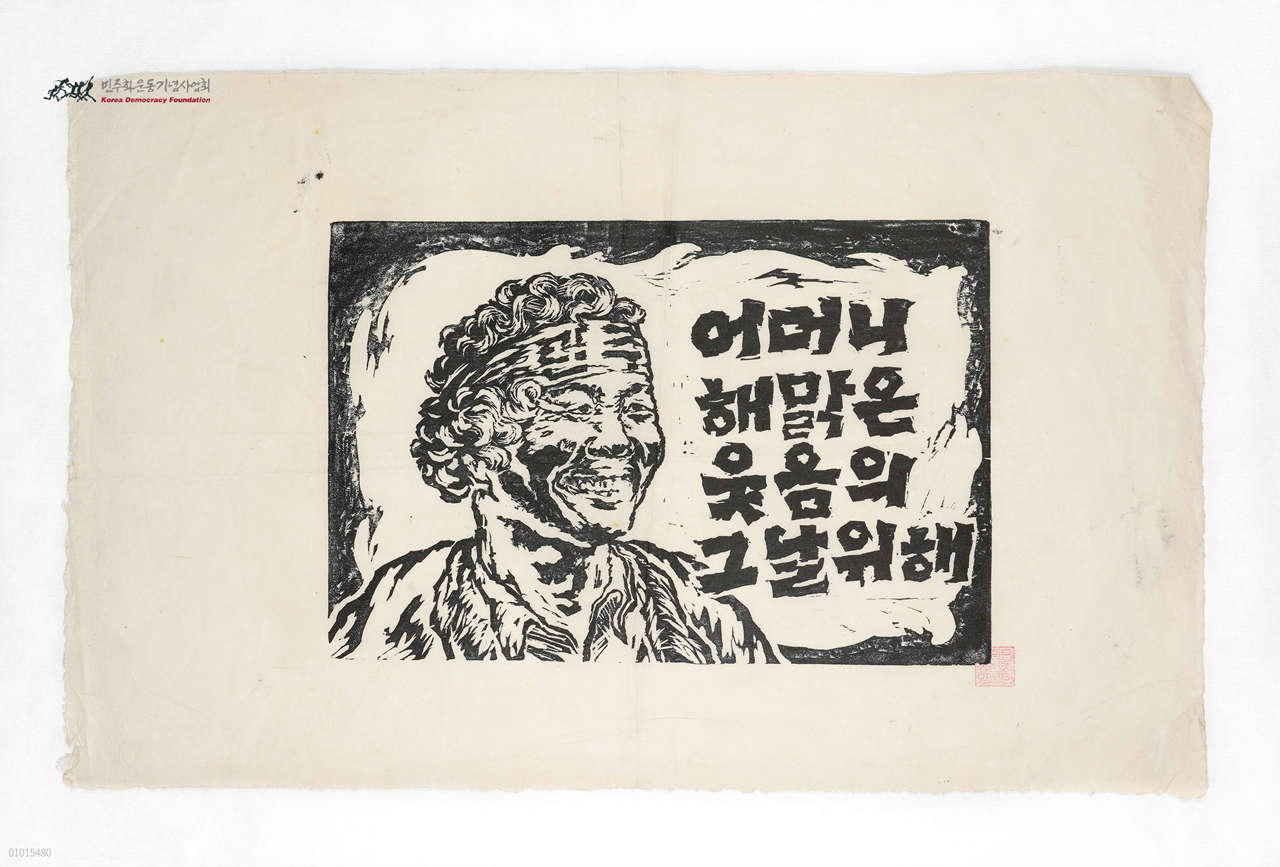 민주화운동기념사업회
Korea Democracy Foundation
어머니
해맑은
웃음의
그날위해
01015480